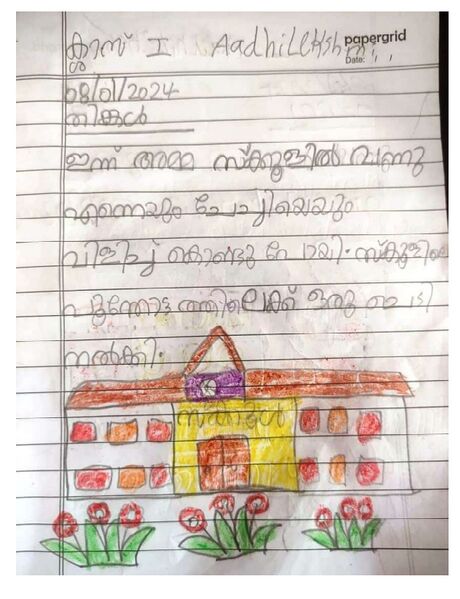 ക്ലാസ് I Aadhilekshmi
papergrid
Date: / /
08/01/2024
തിങ്കൾ
ഇന്ന് അമ്മ സ്ക്കൂളിൽ വന്നു
എന്നെയും ചേച്ചിയെയും
വിളിച്ച് കൊണ്ടു പോയി. സ്കൂളിലെ
പൂന്തോട്ടത്തിലേക്ക് ഒരു ചെടി
നൽകി.
സ്കൂൾ